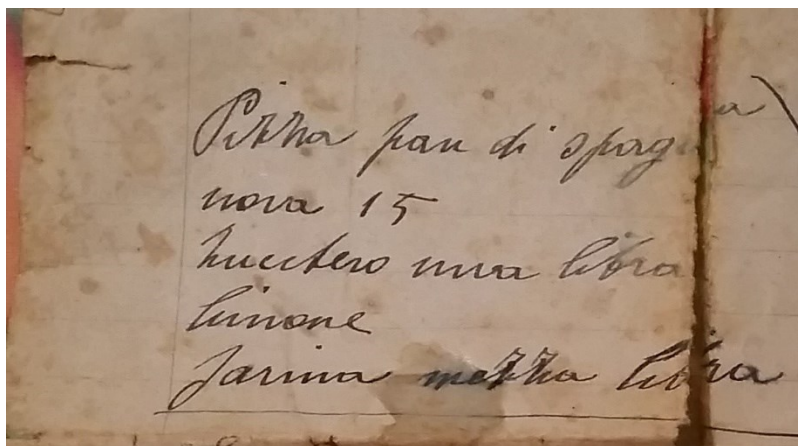 Pizza pan di spagna
uova 15
zucchero una libra
limone
farina mezza libra